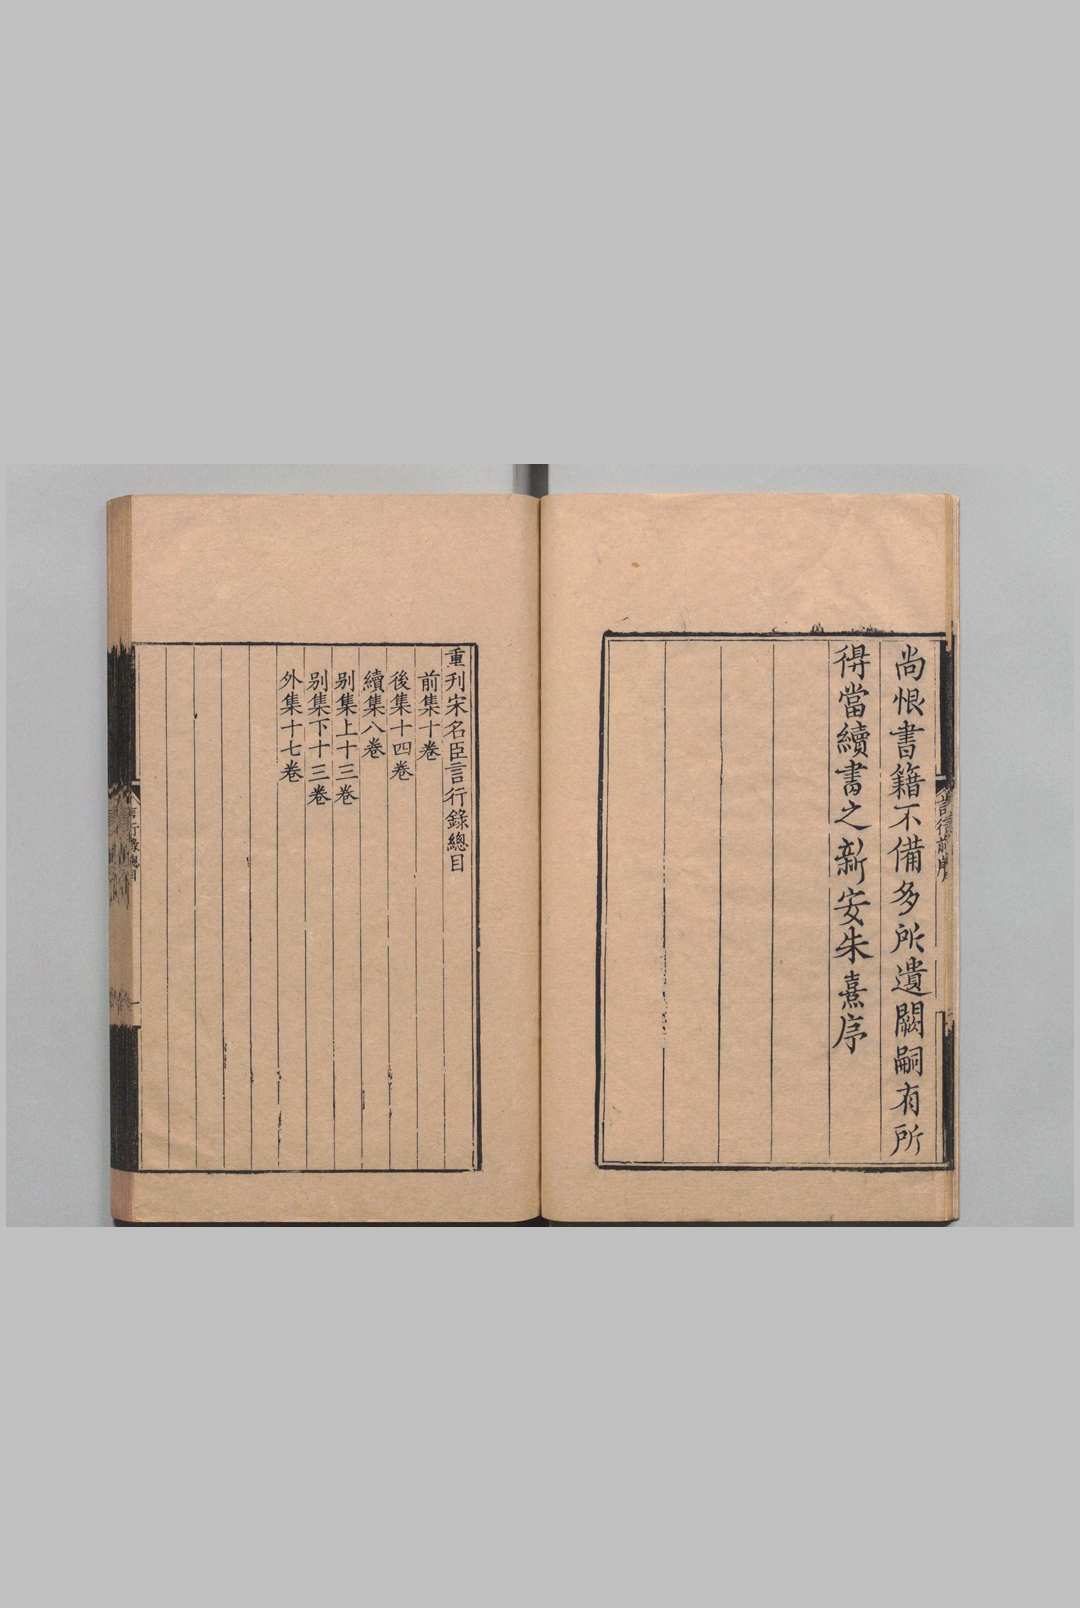 尚恨書籍不備多所遺闕嗣有所
得當續書之新安朱熹序
重刊宋名臣言行錄總目
前集十卷
後集十四卷
續集八卷
别集上十三卷
别集下十三卷
外集十七卷
言行錄總目